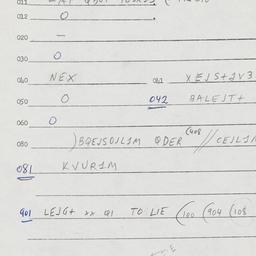 012 O .
020 -
030 O
040 NEX 041 XEJS+2V3
050 O 042 BALEJT+
060 O
080 )BQEJSOJL1M QDER (408 // CEJL1M
081 KVUR1M
901 LEJG+ ** Q1 TO LIE (100 (904 (108